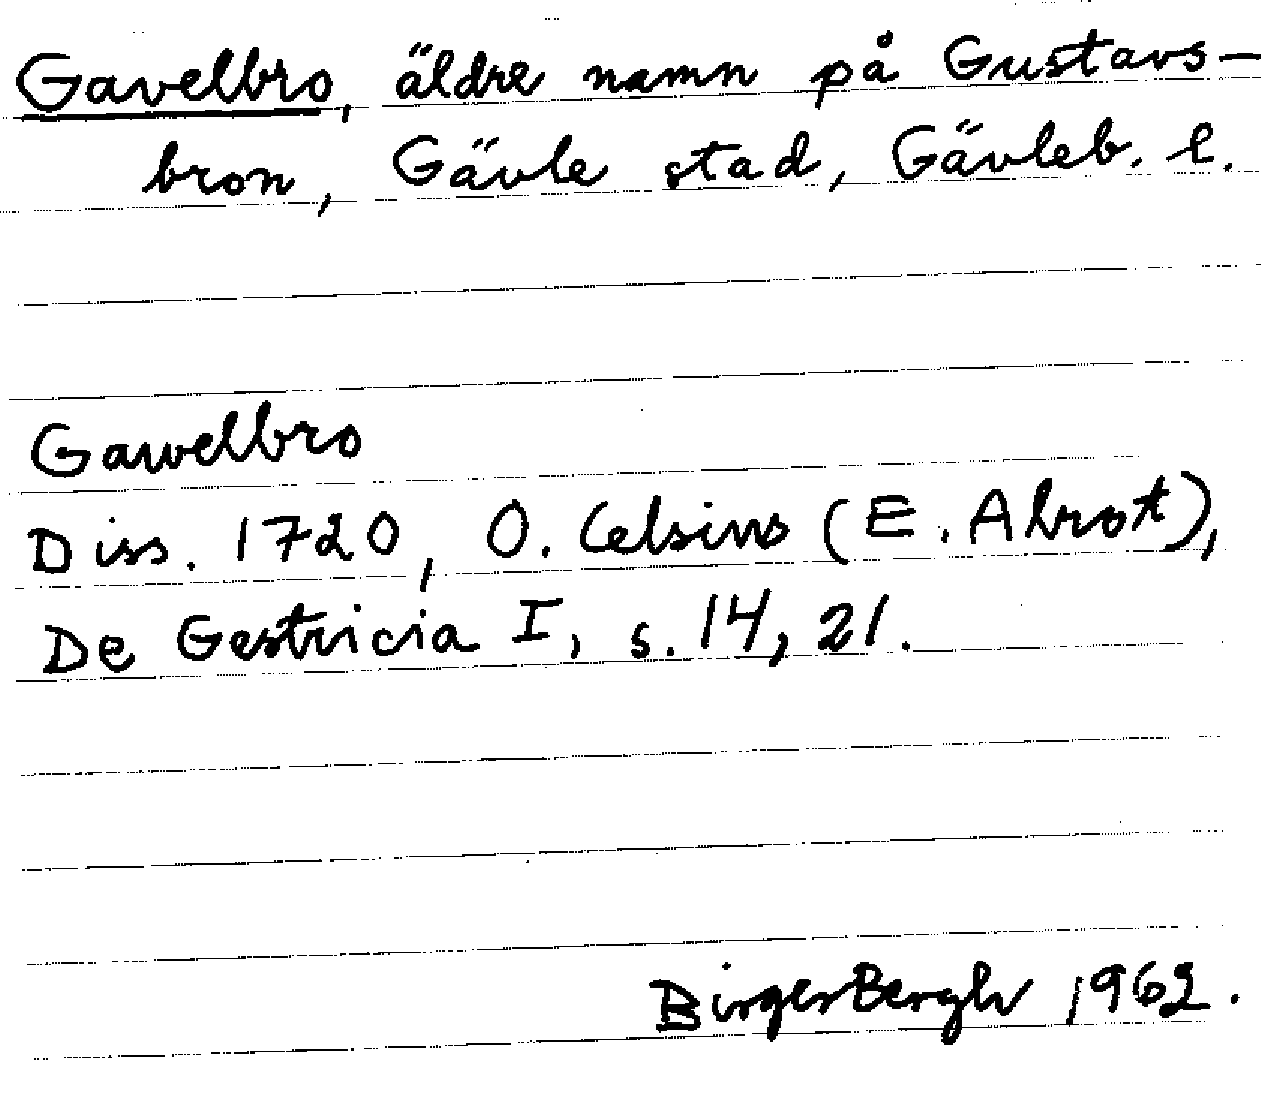 Gavelbro, äldre namn på Gustavs-
bron, Gävle stad, Gävleb. l.
Gawelbro
Diss. 1720, O. Celsius (E. Abrot),
De Gestricia I, s. 14, 21.
Birger Bergh 1962.